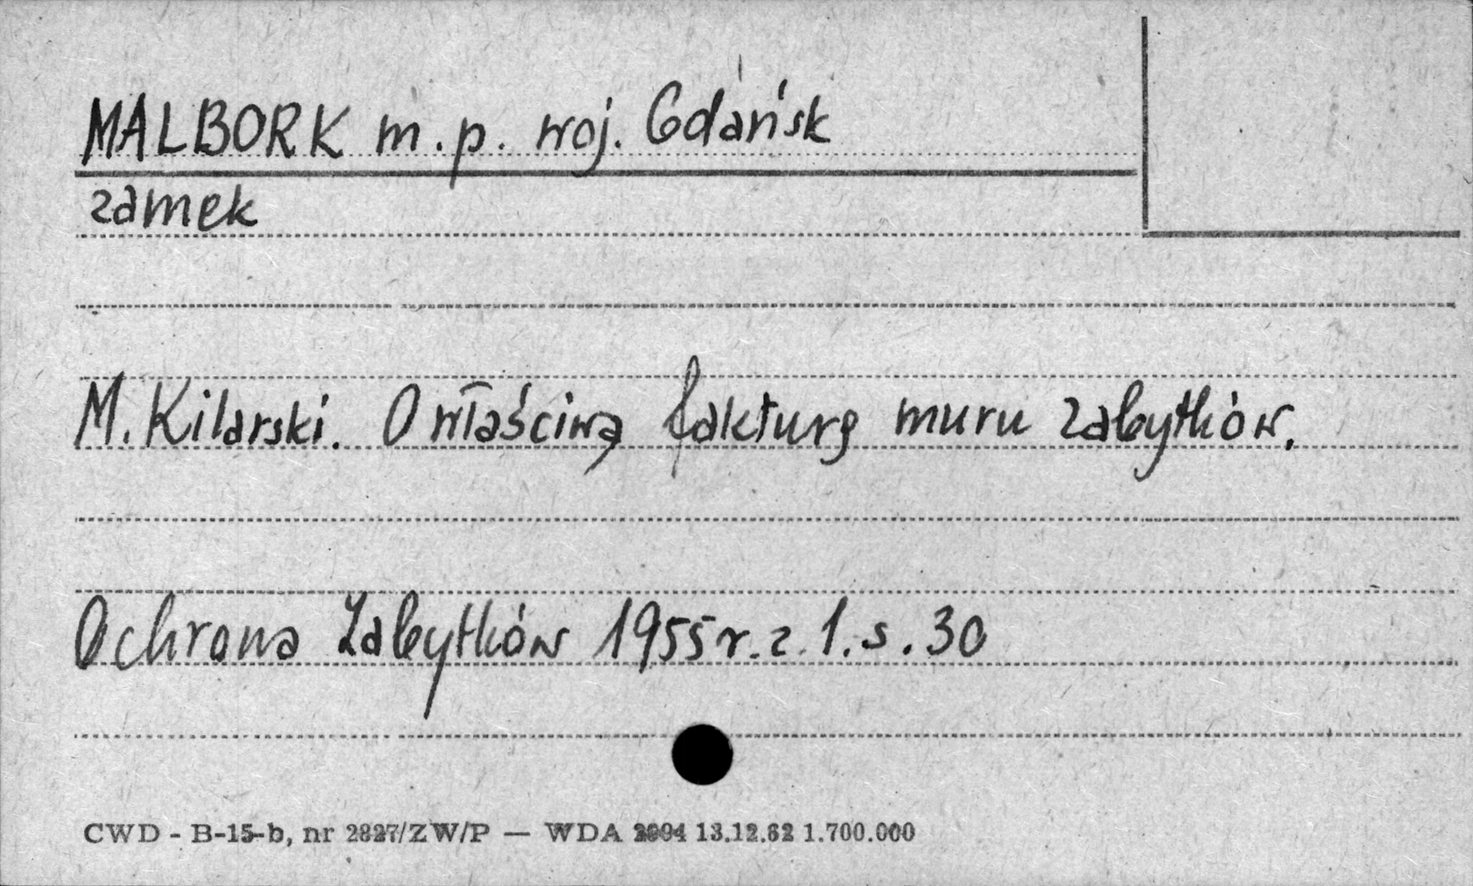 MALBORK m.p. woj. Gdańsk
zamek
M. Kilarski. O właściwą fakturę muru zabytków.
Ochrona Zabytków 1955 r. z. 1. s. 30
CWD - B-15-b, nr 2827/ZW/P — WDA 2094 13.12.62 1.700.000